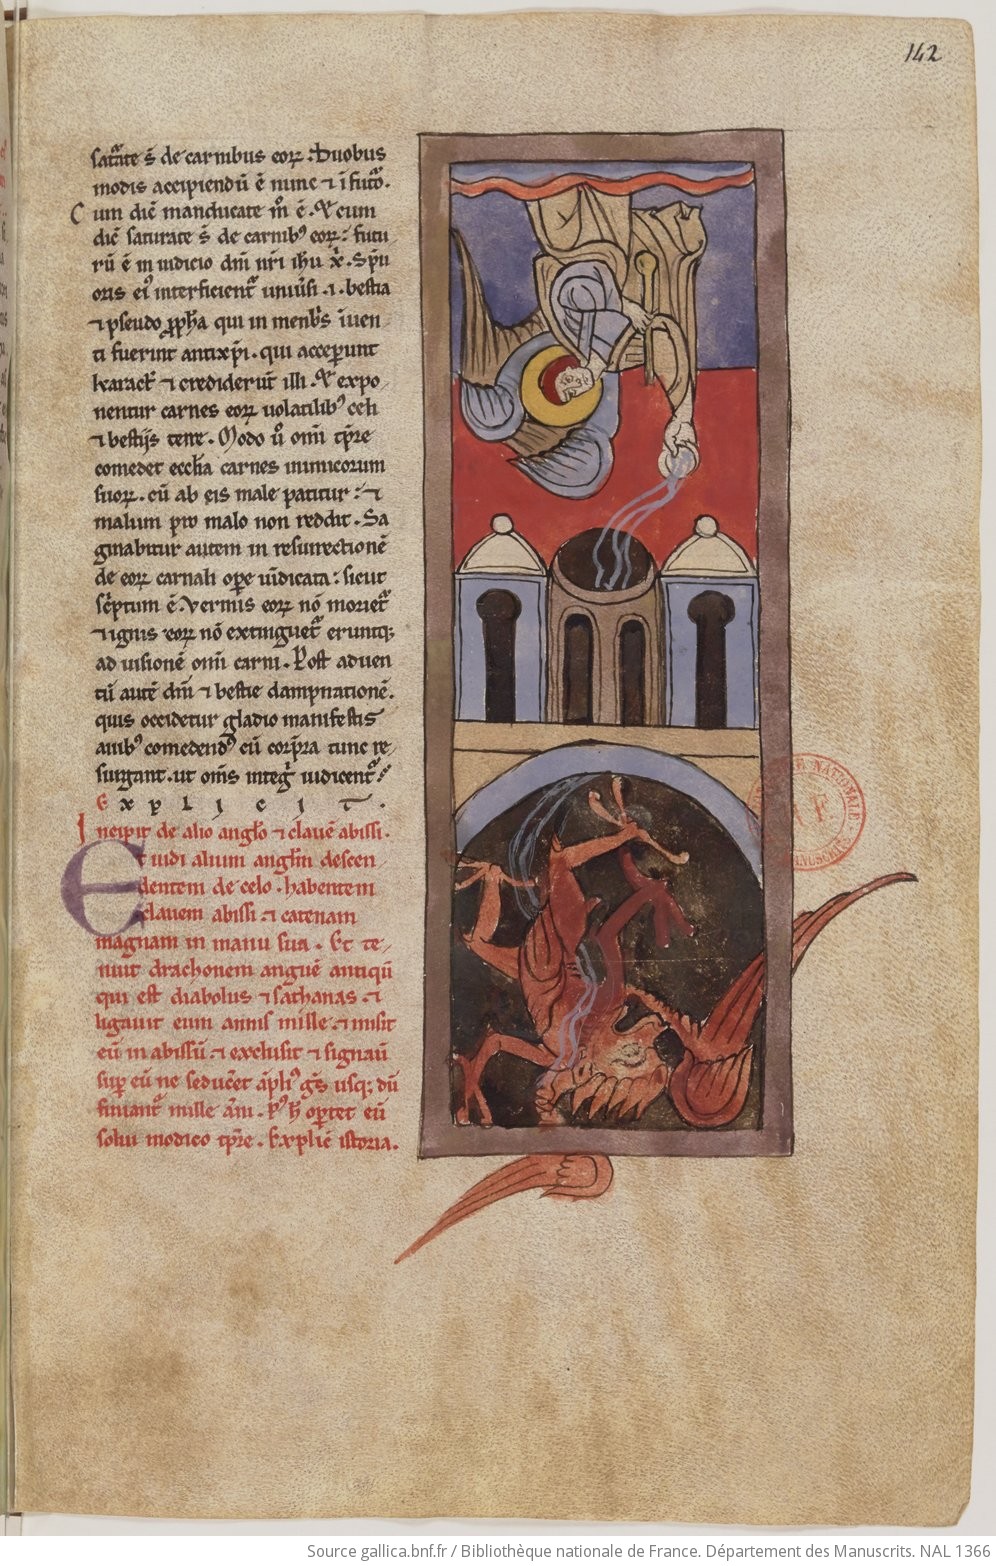 142
sat̄ate s̄ de carnibus eoꝝ. Duobus
modis accipiendū ē nunc ⁊ ī fut̄o.
Cum dic̄ manducate m̊ ē. Et cum
dic̄ saturate s̄ de carnibꝰ eoꝝ: futu
rū ē in iudicio dm̄i nr̄i ihu x̄. Sp̄u
oris eiꝰ interficient᷑ uniūsi .i. bestia
⁊ pseudo ꝓph̄a qui in menb̄s īuen
ti fuerint antixp̄i. qui acceꝑunt
karact̄ ⁊ crediderūt illi. Et expo
nentur carnes eoꝝ uolatilibꝰ celi
⁊ bestijs terre. Modo ū omī tp̄re
comedet eccl̄ia carnes inimicorum
suoꝝ. cū ab eis male patitur: ⁊
malum pro malo non reddit. Sa
ginabitur autem in resurrectionē
de eoꝝ carnali oꝑe uīdicata: sicut
sc̄ptum ē. Vermis eoꝝ nō moriet᷑
⁊ ignis eoꝝ nō extinguet᷑ eruntqꝫ
ad uisionē omī carni. Post aduen
tū autē dm̄i ⁊ bestie dampnationē.
quis occidetur gladio manifestis
auibꝰ comedendꝰ cū corꝑra tunc re
surgant. ut om̄s integr̄ iudicent᷑
Explicit.
Incipit de alio angl̄o ⁊ clauē abissi.
Et uidi alium angl̄m descen
dentem de celo. habentem
clauem abissi ⁊ catenam
magnam in manu sua. Et te
nuit drachonem anguē antiqū
qui est diabolus ⁊ sathanas ⁊
ligauit eum annis mille. ⁊ misit
eū in abissū. ⁊ exclusit ⁊ signaū
suꝑ eū ne seducēt āpliꝰ ḡs usqꝫ dū
finiant᷑ mille ān̄i. Pꝰ h̄ oꝑtet eū
solui modico tp̄re. Explic̄ istoria.
Source gallica.bnf.fr / Bibliothèque nationale de France. Département des Manuscrits. NAL 1366